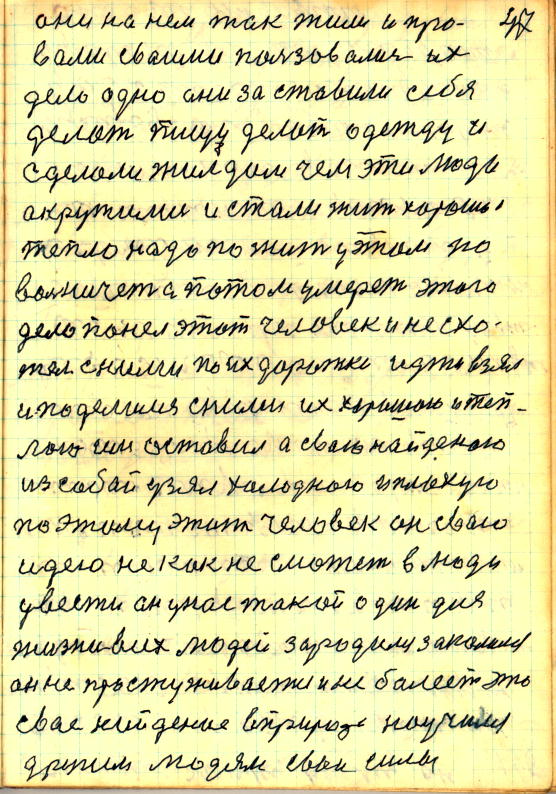 247
они на нем так жили и про-
вами сваими ползовались их
дело одно они заставили себя
делат пищу делат одежду и
сделали жил дом чем эти люди
акружили и стали жит хорошо и
тепло надо пожит у этом по
а потом умерет этого
дело понел этот человек и не схо-
тел сними по их дорожки идти взял
и поделился сними их хорошою и теп-
лою им оставил а сваю найденою
из сабай узял холодною и плохую
по этому этот человек он сваю
идею не как не сможет в люди
увести он у нас такой один для
жизни всих людей зародился закалился
он не простуживается и не балеет это
свае найденое в природе научился
другим людям сваи силы